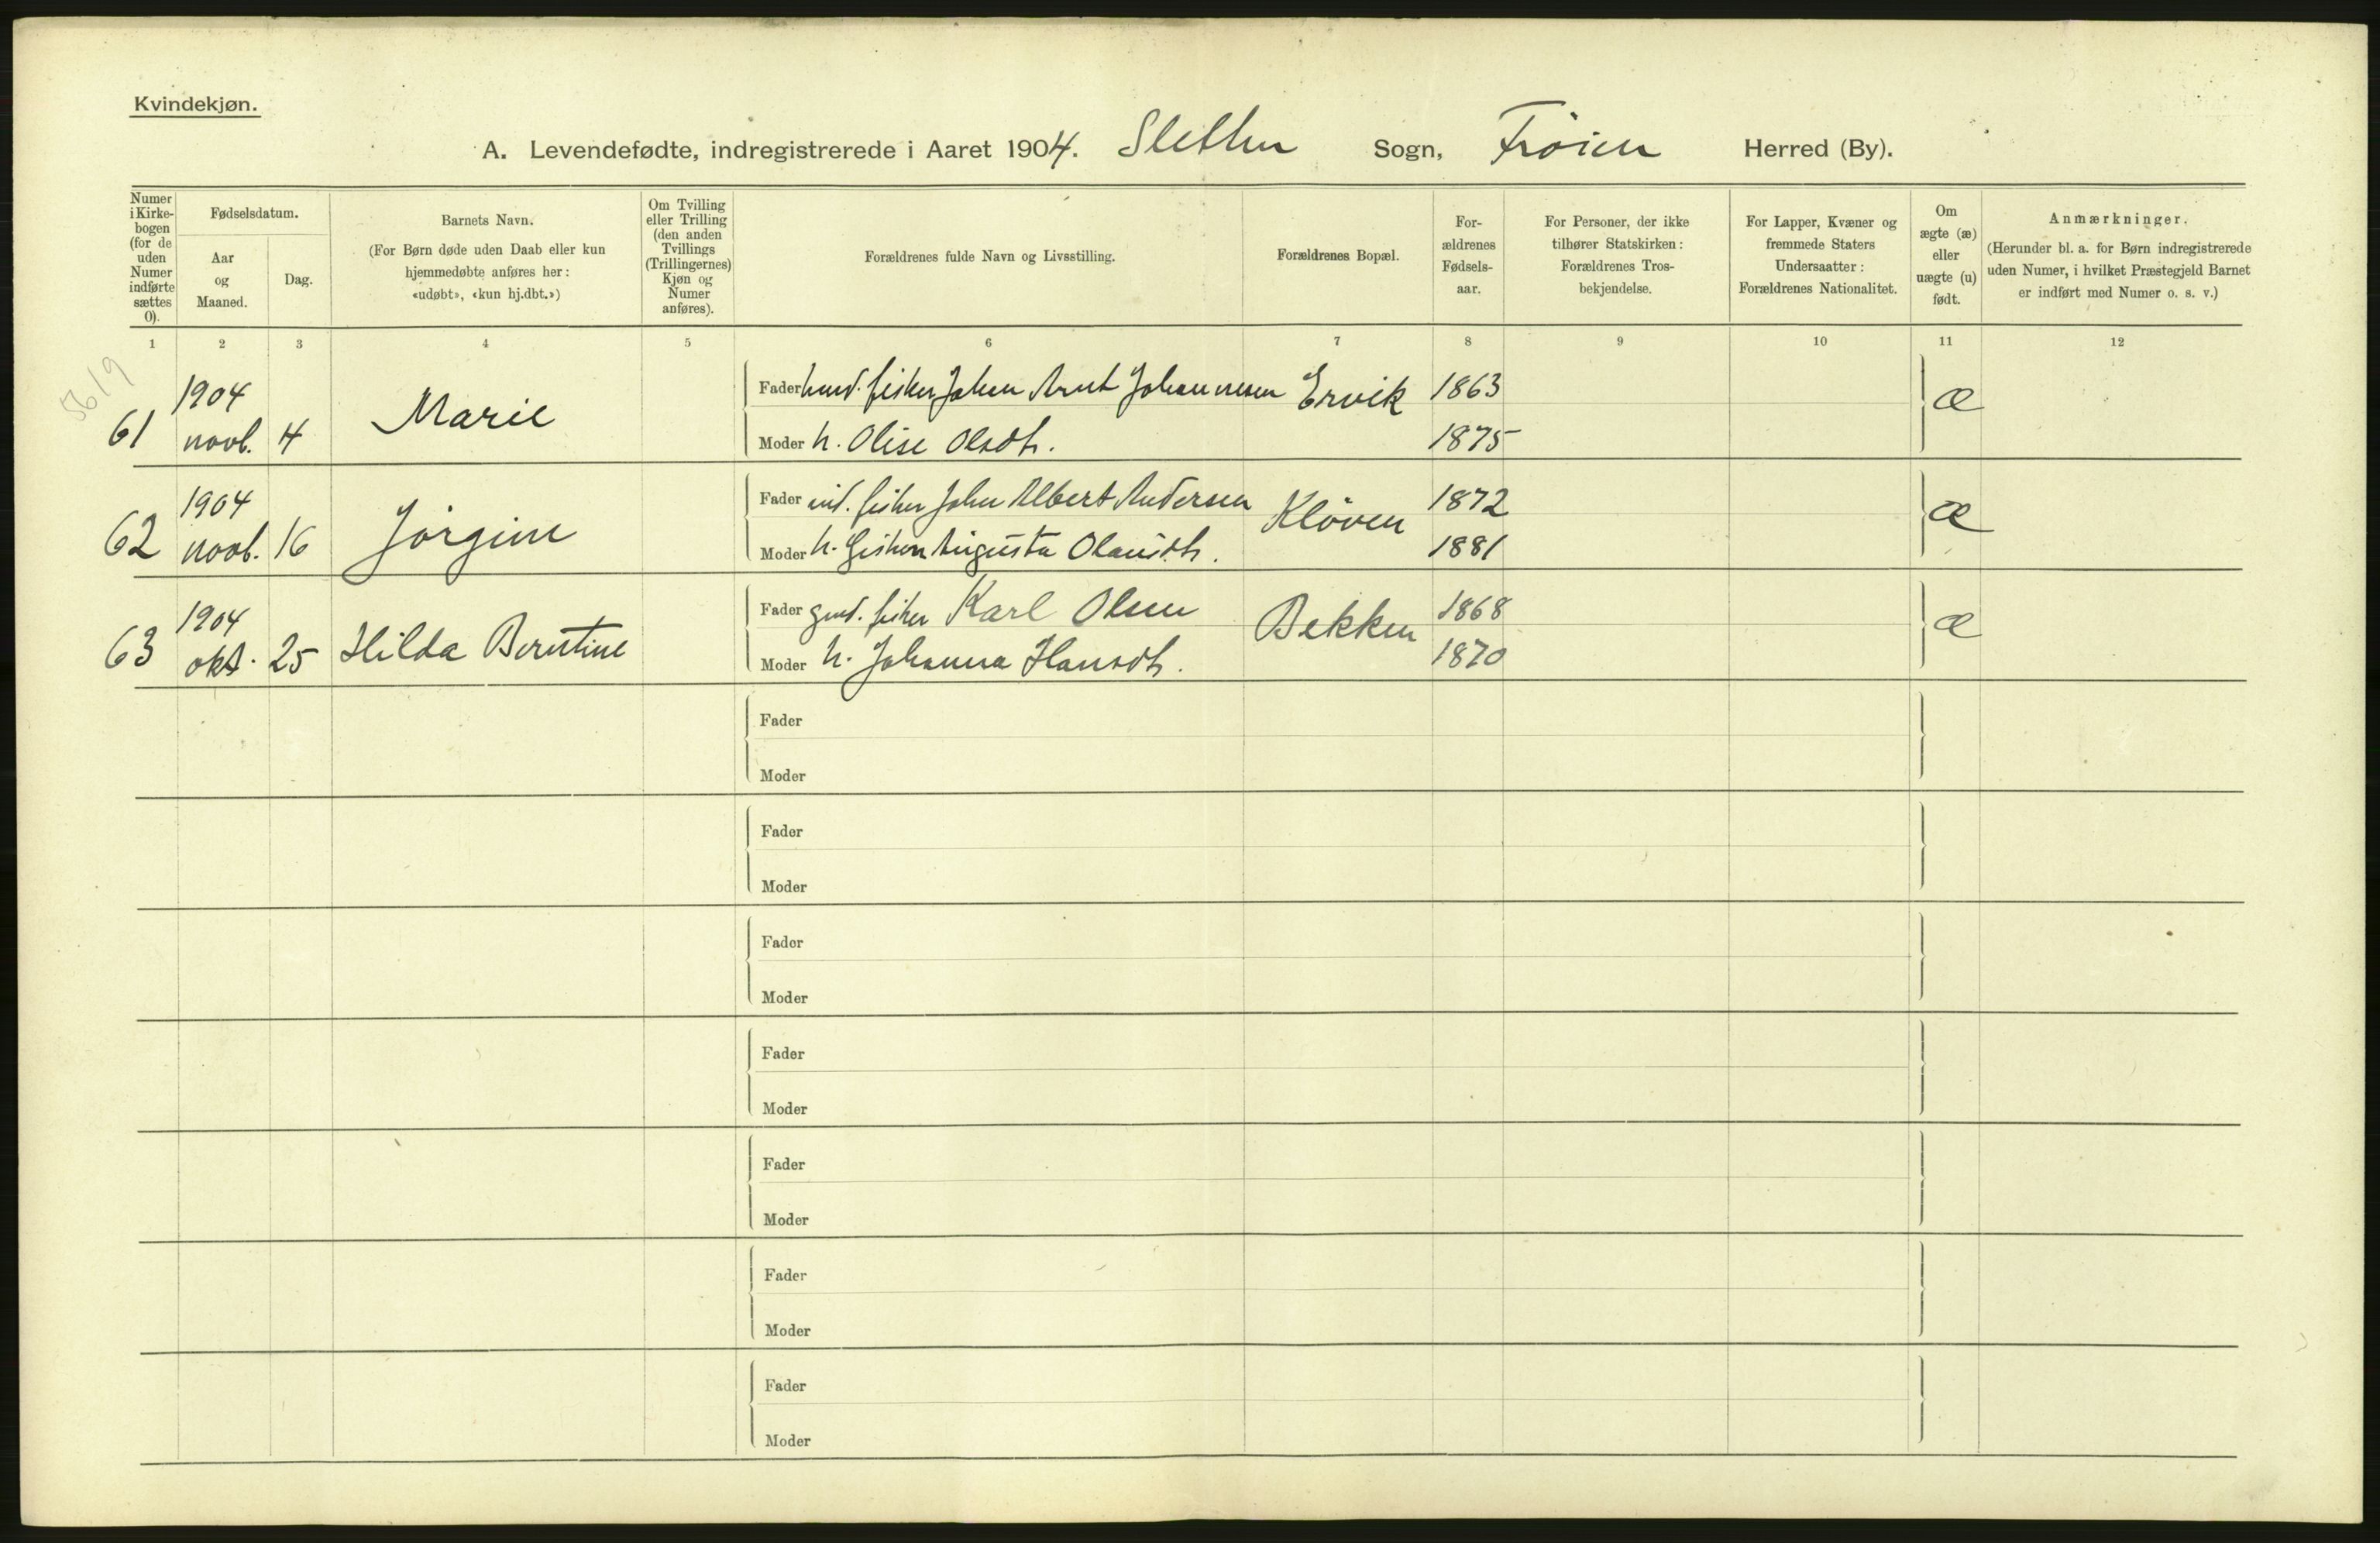 Kvindekjøn.
A. Levendefødte, indregistrerede i Aaret 1904. Sletten Sogn, Frøien Herred (By).
Numer i Kirkebogen (for de uden Numer indførte sættes 0).
Fødselsdatum.
Aar og Maaned.
Dag.
Barnets Navn.
(For Børn døde uden Daab eller kun hjemmedøbte anføres her: «udøbt», «kun hj.dbt.»)
Om Tvilling eller Trilling (den anden Tvillings (Trillingernes) Kjøn og Numer anføres).
Forældrenes fulde Navn og Livsstilling.
Forældrenes Bopæl.
Forældrenes Fødselsaar.
For Personer, der ikke tilhører Statskirken: Forældrenes Trosbekjendelse.
For Lapper, Kvæner og fremmede Staters Undersaatter: Forældrenes Nationalitet.
Om ægte (æ) eller uægte (u) født.
Anmærkninger.
(Herunder bl. a. for Børn indregistrerede uden Numer, i hvilket Præstegjeld Barnet er indført med Numer o. s. v.)
1 2 3 4 5 6 7 8 9 10 11 12
5619
61 1904 novb. 4 Marie
Fader fisker Johan Arnt Johannesen Ervik 1863 æ
Moder h. Olise Olsdt. 1875
62 1904 novb. 16 Jörgine
Fader ind. fisker John Albert Andersen Klöven 1872 æ
Moder h. Augusta Olausdt. 1881
63 1904 okt. 25 Hilda Berntine
Fader gmd. fisker Karl Olsen Bekken 1868 æ
Moder h. Johanna Hansdt. 1870
Fader
Moder
Fader
Moder
Fader
Moder
Fader
Moder
Fader
Moder
Fader
Moder
Fader
Moder